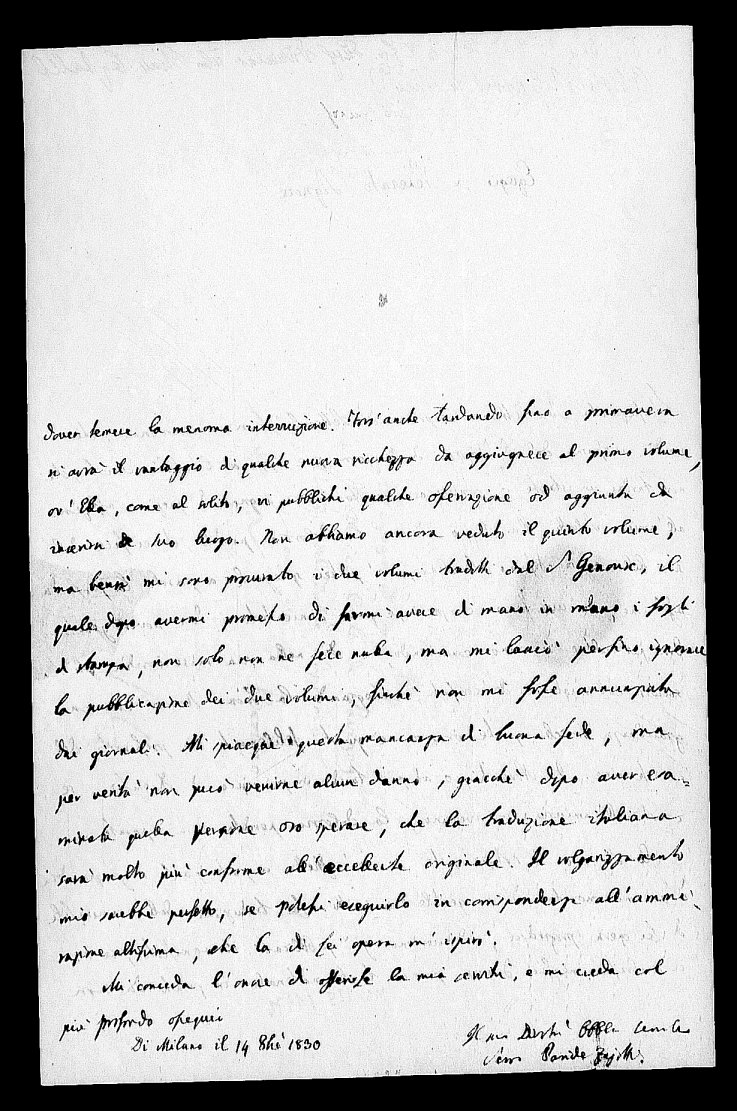 dover temere la menoma interruzione. Fors' anche tardando fino a primavera
vi avrà il vantaggio di qualche nuova ricchezza da aggiugnere al primo volume,
ov' Ella, come al solito, vi pubblichi qualche osservazione od aggiunta da
inserirsi a suo luogo. Non abbiamo ancora veduto il quinto volume,
ma bensì mi sono procurato i due volumi tradotti dal Sr Genovix, il
quale dopo avermi promesso di farmi avere di mano in mano i fogli
di stampa, non solo non ne fece nulla, ma mi lasciò perfino ignorare
la pubblicazione dei due volumi, finchè non mi fosse annunziata
dai giornali. Mi spiacque questa mancanza di buona fede, ma
per verità non può venirne alcun danno, giacchè dopo aver esa=
minata quella versione oso sperare, che la traduzione italiana
sarà molto più conforme all' eccellente originale. Il volgarizzamento
mio sarebbe perfetto, se potessi eseguirlo in corrispondenza all' ammi=
razione altissima, che la di Lei opera m' ispirò.
Mi conceda l' onore di offerirle la mia servitù, e mi creda col
più profondo ossequio
Di Milano il 14 8bre 1830
Il suo
Paride Zajotti.